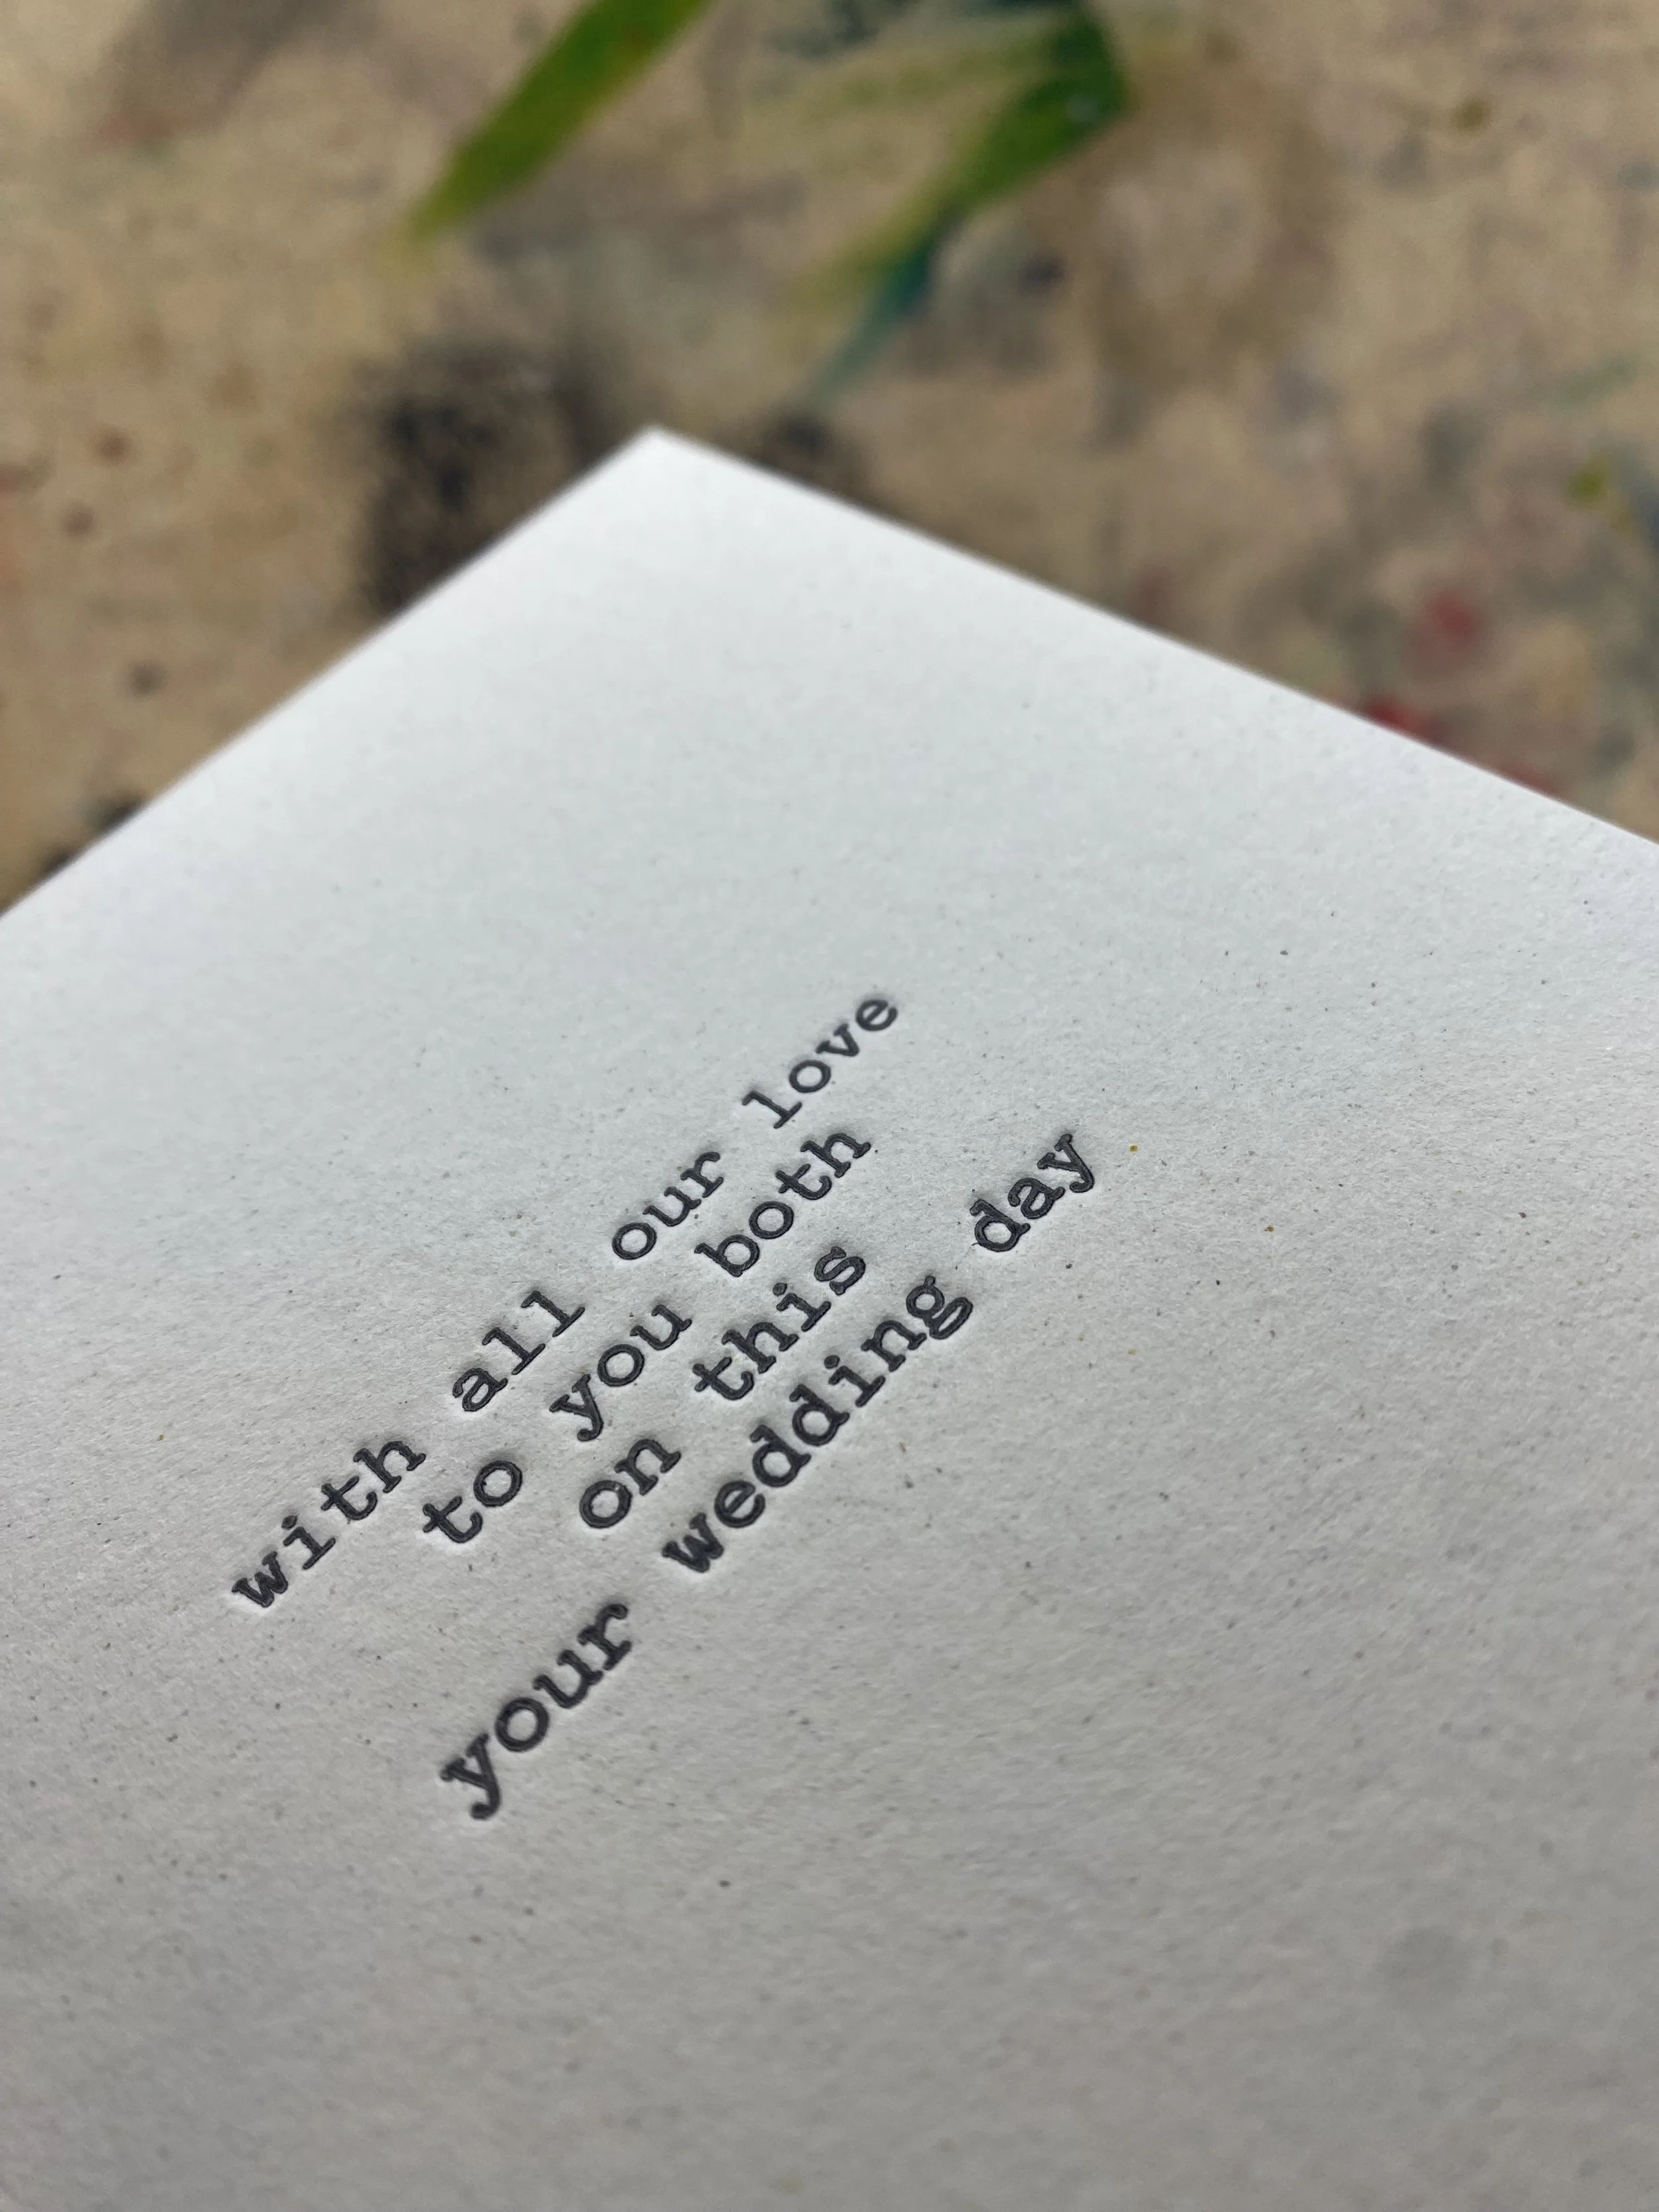 with all our love
to you both
on this
your wedding day